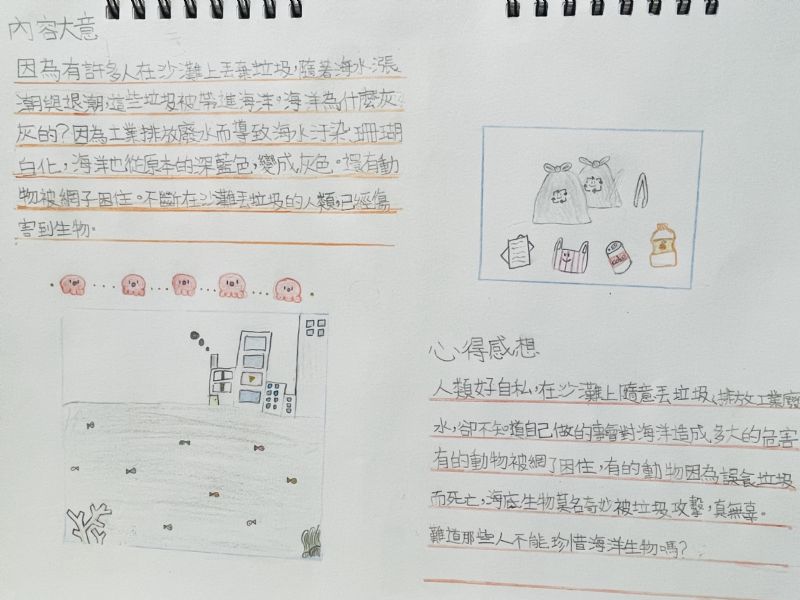 內容大意
因為有許多人在沙灘上丟棄垃圾，隨著海水漲
潮與退潮，這些垃圾被帶進海洋。海洋為什麼灰
灰的？因為工業排放廢水而導致海水汙染、珊瑚
白化，海洋也從原本的深藍色，變成灰色。還有動
物被網子困住。不斷在沙灘丟垃圾的人類，已經傷
害到生物。
心得感想
人類好自私，在沙灘上隨意丟垃圾、排放工業廢
水，卻不知道自己做的事會對海洋造成多大的危害
有的動物被網子困住，有的動物因為誤食垃圾
而死亡，海底生物莫名奇妙被垃圾攻擊，真無辜。
難道那些人不能珍惜海洋生物嗎？